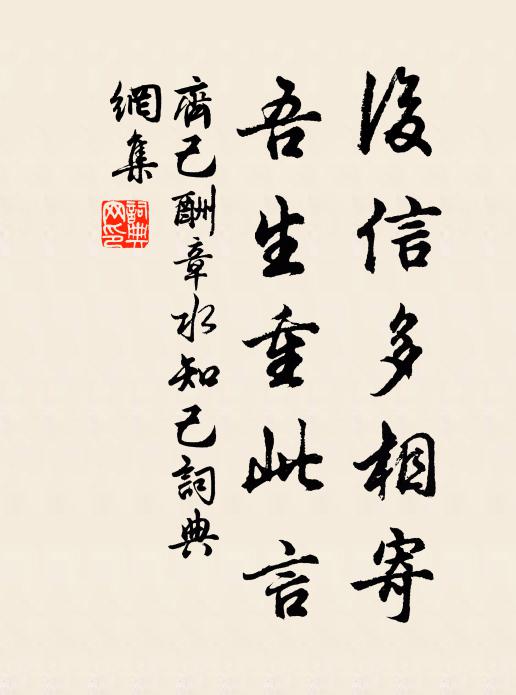 後信多相寄
吾生重此言
齊己酬章水知己詞典
網集
詞典
网印